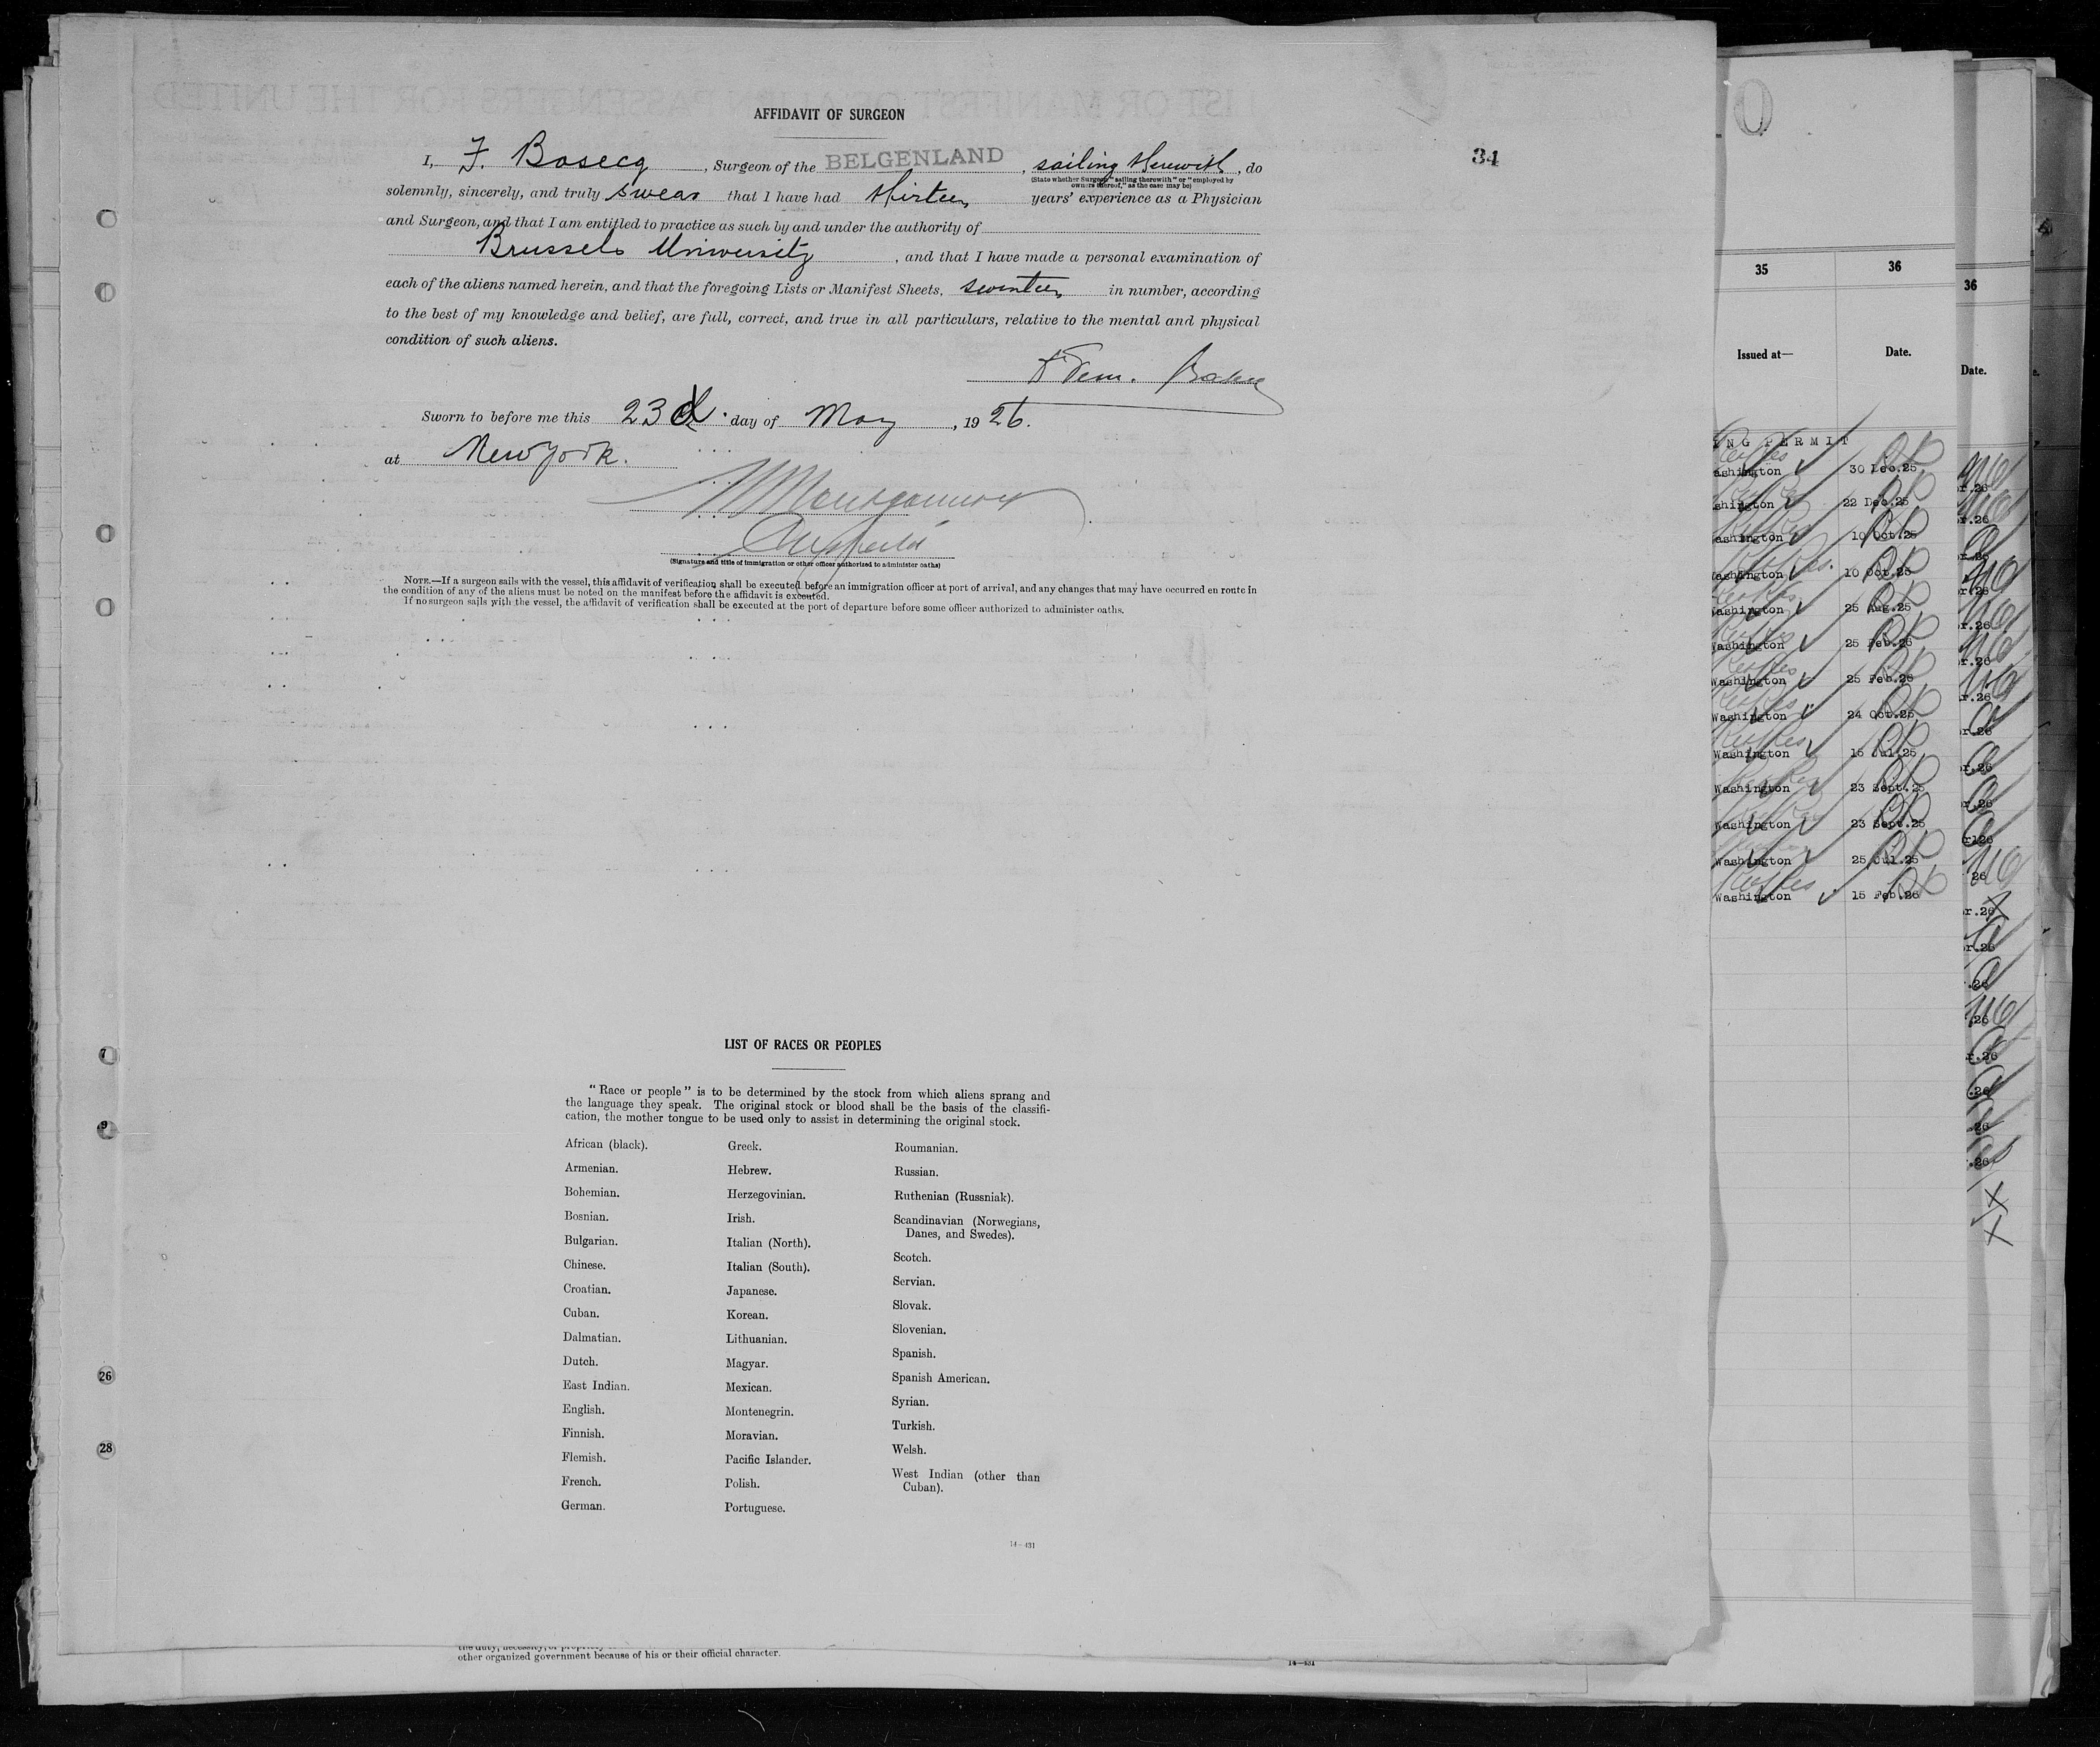 AFFIDAVIT OF SURGEON
34
I, F. Bosecq, Surgeon of the BELGENLAND, sailing therewith, do
(State whether Surgeon "sailing therewith" or "employed by
owners thereof," as the case may be)
solemnly, sincerely, and truly swear that I have had thirteen years' experience as a Physician
and Surgeon, and that I am entitled to practice as such by and under the authority of
Brussels University, and that I have made a personal examination of
each of the aliens named herein, and that the foregoing Lists or Manifest Sheets, seventeen in number, according
to the best of my knowledge and belief, are full, correct, and true in all particulars, relative to the mental and physical
condition of such aliens.
Sworn to before me this 23d. day of May, 1926.
at New York.
Montgomery
(Signature and title of immigration or other officer authorized to administer oaths)
NOTE.—If a surgeon sails with the vessel, this affidavit of verification shall be executed before an immigration officer at port of arrival, and any changes that may have occurred en route in
the condition of any of the aliens must be noted on the manifest before the affidavit is executed.
If no surgeon sails with the vessel, the affidavit of verification shall be executed at the port of departure before some officer authorized to administer oaths.
LIST OF RACES OR PEOPLES
"Race or people" is to be determined by the stock from which aliens sprang and
the language they speak. The original stock or blood shall be the basis of the classifi-
cation, the mother tongue to be used only to assist in determining the original stock.
African (black).
Armenian.
Bohemian.
Bosnian.
Bulgarian.
Chinese.
Croatian.
Cuban.
Dalmatian.
Dutch.
East Indian.
English.
Finnish.
Flemish.
French.
German.
Greek.
Hebrew.
Herzegovinian.
Irish.
Italian (North).
Italian (South).
Japanese.
Korean.
Lithuanian.
Magyar.
Mexican.
Montenegrin.
Moravian.
Pacific Islander.
Polish.
Portuguese.
Roumanian.
Russian.
Ruthenian (Russniak).
Scandinavian (Norwegians,
Danes, and Swedes).
Scotch.
Servian.
Slovak.
Slovenian.
Spanish.
Spanish American.
Syrian.
Turkish.
Welsh.
West Indian (other than
Cuban).
14—431
7
9
26
28
other organized government because of his or their official character.
14—431
35 36
Issued at— Date.
NG PERMIT
ashington 30 Dec.25
shington 22 Dec.25
ashington 10 Oct.25
Washington 10 Oct.25
Washington 25 Aug.25
Washington 25 Feb.26
Washington 25 Feb.26
Washington 24 Oct.25
Washington 15 Jul.25
Washington 23 Sept.25
Washington 23 Sept.25
Washington 25 Jul.25
Washington 15 Feb.26
36
Date.